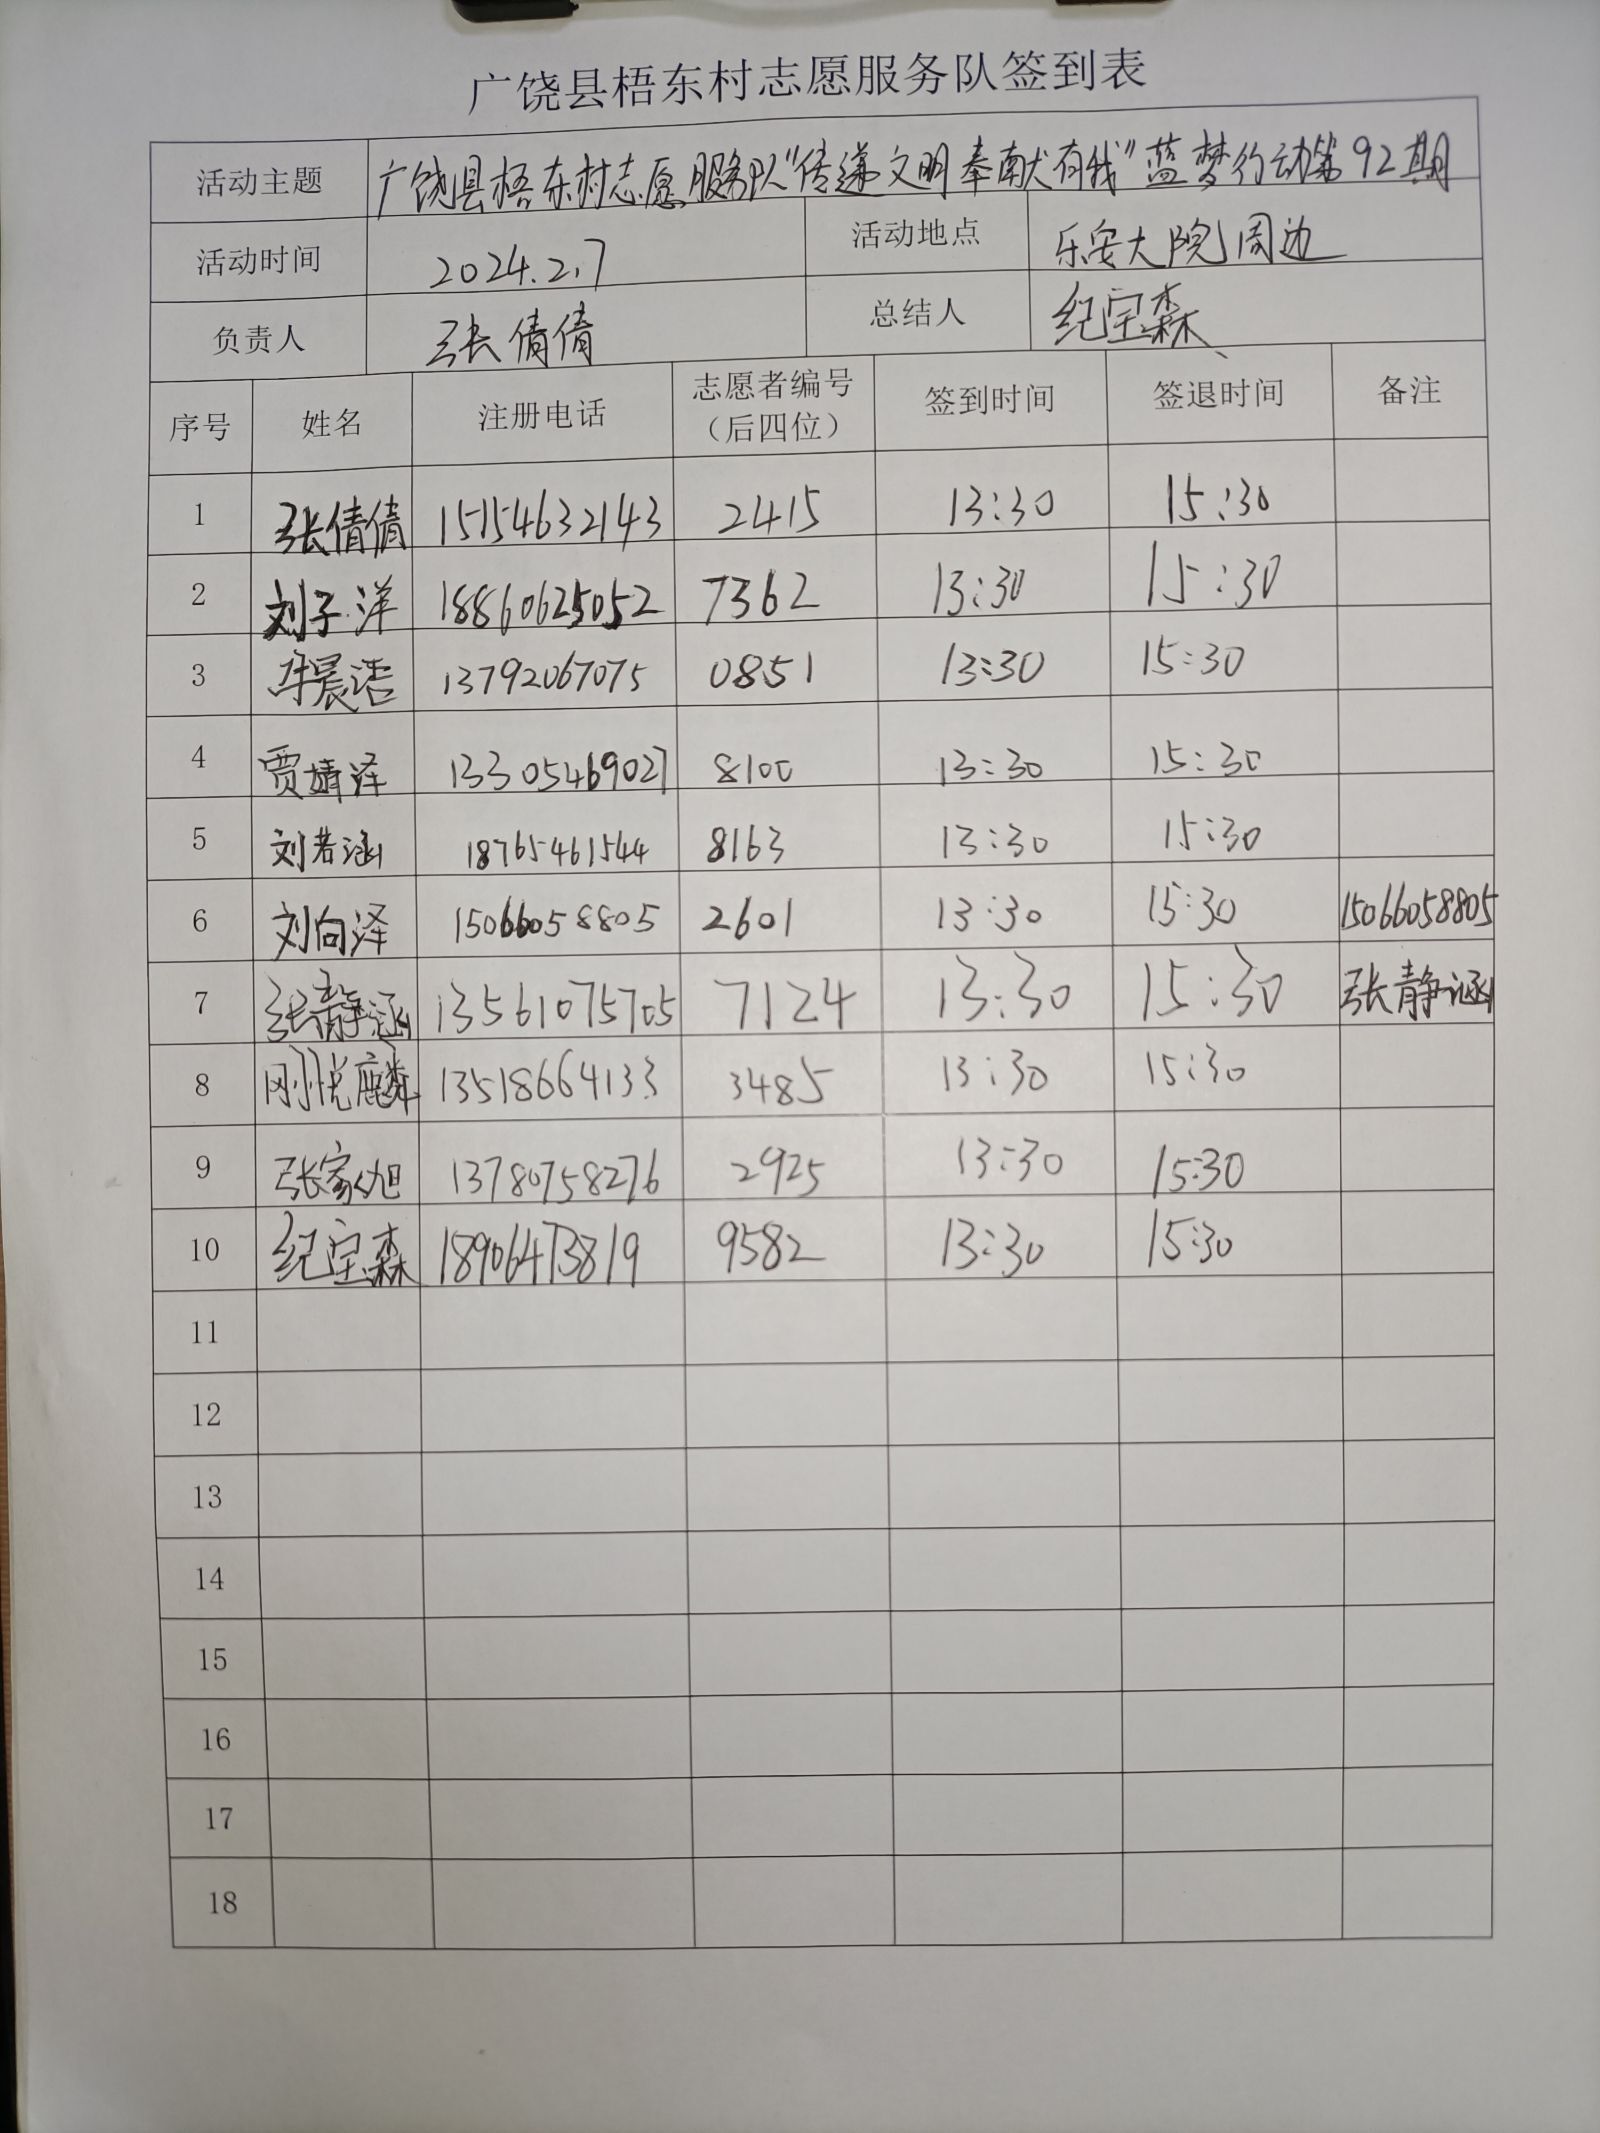 广饶县梧东村志愿服务队签到表
活动主题 广饶县梧东村志愿服务队“传递文明 奉献有我”蓝梦行动第92期
活动时间 2024.2.7 活动地点 乐安大院周边
负责人 张倩倩 总结人 纪宝森
序号 姓名 注册电话 志愿者编号（后四位） 签到时间 签退时间 备注
1 张倩倩 15154632143 2415 13:30 15:30
2 刘子洋 18860625052 7362 13:30 15:30
3 晨浩 13792067075 0851 13:30 15:30
4 贾靖泽 13305469027 8100 13:30 15:30
5 刘若涵 18765461544 8163 13:30 15:30
6 刘向泽 15066058805 2601 13:30 15:30 15066058805
7 张静涵 13561075705 7124 13:30 15:30 张静涵
8 刚悦麟 13518664133 3485 13:30 15:30
9 张家旭 13780758276 2925 13:30 15:30
10 纪宝森 18906473819 9582 13:30 15:30
11
12
13
14
15
16
17
18